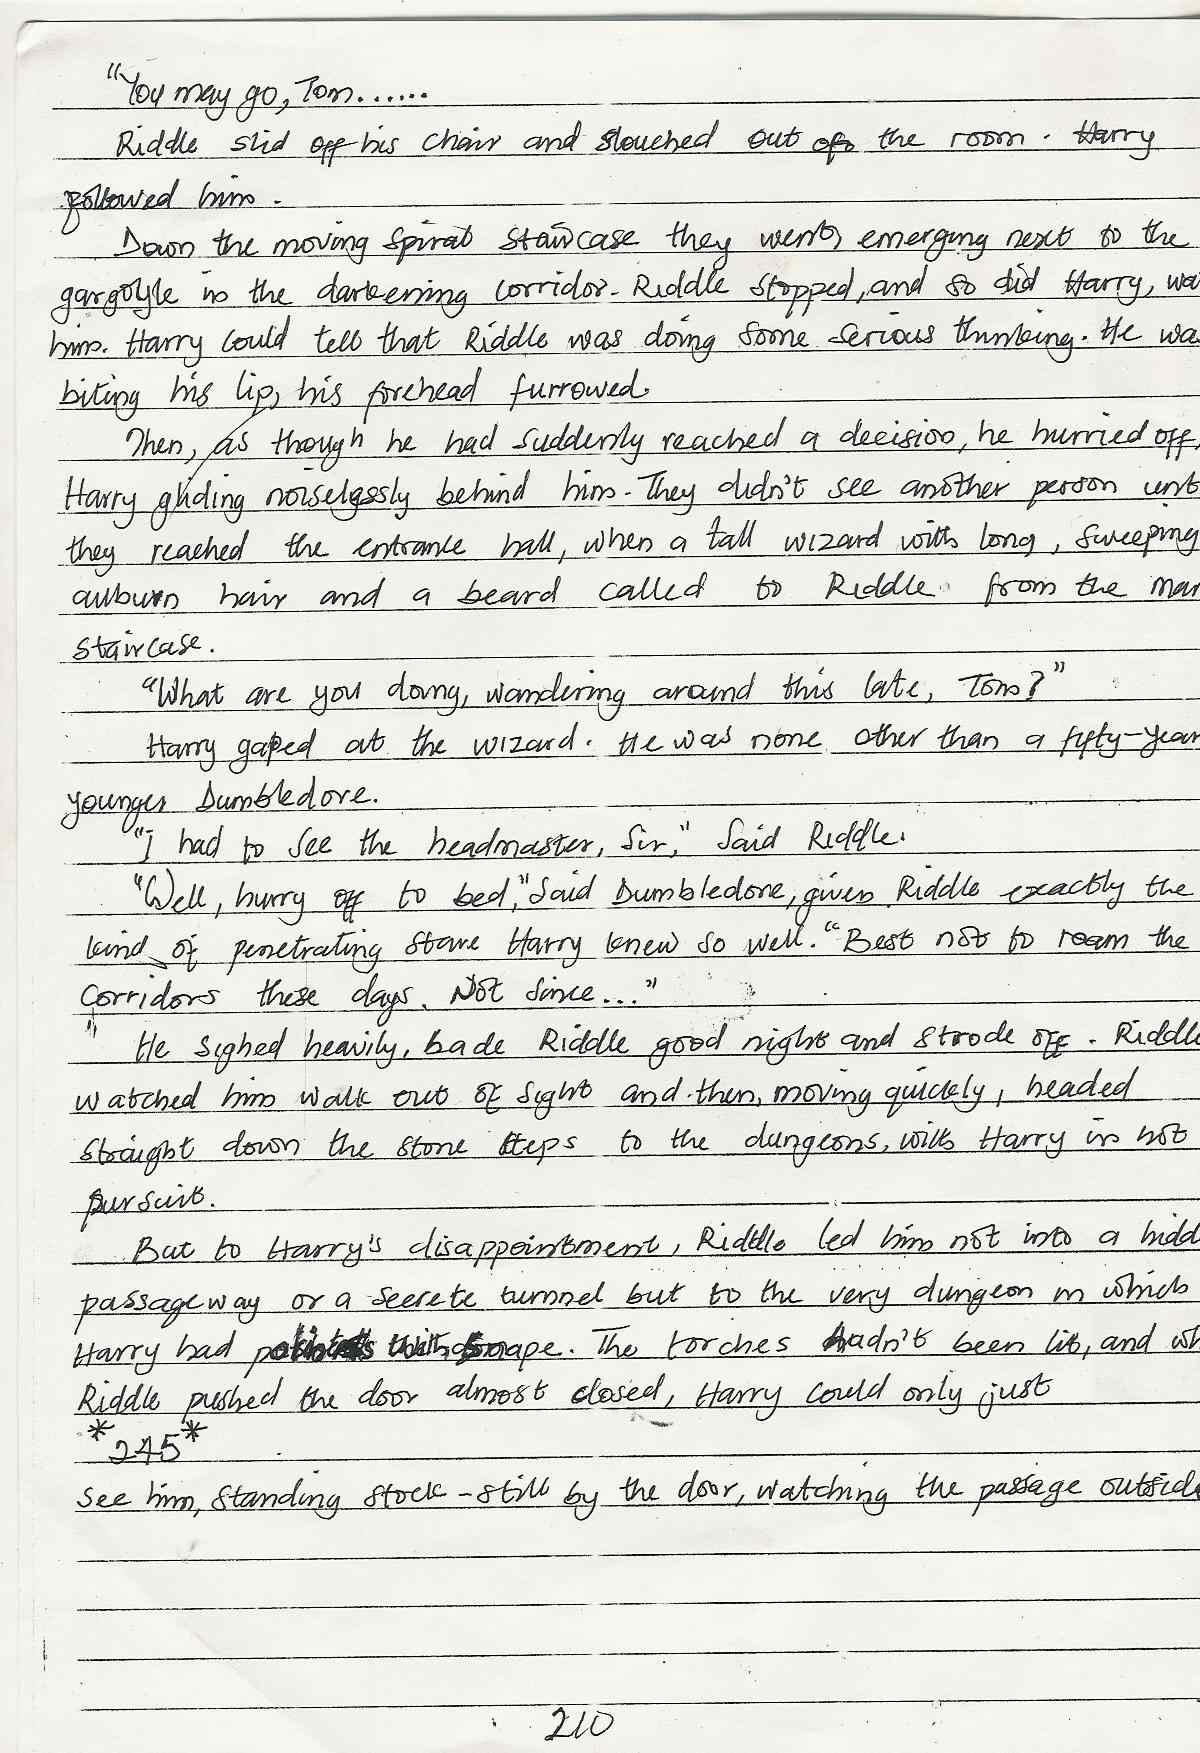 "You may go, Tom......
Riddle slid off his chair and slouched out of the room. Harry
followed him.
Down the moving spiral staircase they went, emerging next to the
gargoyle in the darkening corridor. Riddle stopped, and so did Harry, wa
him. Harry could tell that Riddle was doing some serious thinking. He wa
biting his lip, his forehead furrowed.
Then, as though he had suddenly reached a decision, he hurried off,
Harry gliding noiselessly behind him. They didn't see another person unt
they reached the entrance hall, when a tall wizard with long, sweeping
auburn hair and a beard called to Riddle from the mar
staircase.
"What are you doing, wandering around this late, Tom?"
Harry gaped at the wizard. He was none other than a fifty-year
younger Dumbledore.
"I had to see the headmaster, Sir," said Riddle.
"Well, hurry off to bed," said Dumbledore, given Riddle exactly the
kind of penetrating stare Harry knew so well. "Best not to roam the
corridors these days. Not since..."
" He sighed heavily, bade Riddle good night and strode off. Riddle
watched him walk out of sight and then, moving quickly, headed
straight down the stone steps to the dungeons, with Harry in hot
pursuit.
But to Harry's disappointment, Riddle led him not into a hidd
passageway or a secrete tunnel but to the very dungeon in which
Harry had with Snape. The torches hadn't been lit, and wh
Riddle pushed the door almost closed, Harry could only just
*245*
see him, standing stock-still by the door, watching the passage outside
210